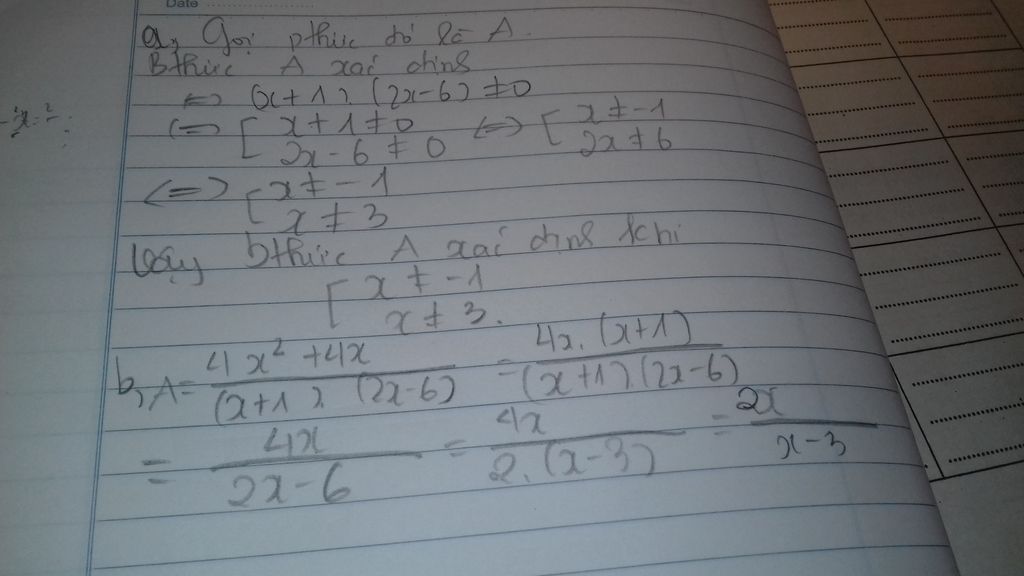 Date
a, Gọi pthức đó là A.
Bthức A xác định
<=> (x+1).(2x-6) ≠ 0
<=> [ x+1 ≠ 0 <=> [ x ≠ -1
2x-6 ≠ 0 2x ≠ 6
<=> [ x ≠ -1
x ≠ 3
Vậy bthức A xác định khi
[ x ≠ -1
x ≠ 3.
b, A = \frac{4x² + 4x}{(x+1).(2x-6)} = \frac{4x.(x+1)}{(x+1).(2x-6)}
= \frac{4x}{2x-6} = \frac{4x}{2.(x-3)} = \frac{2x}{x-3}